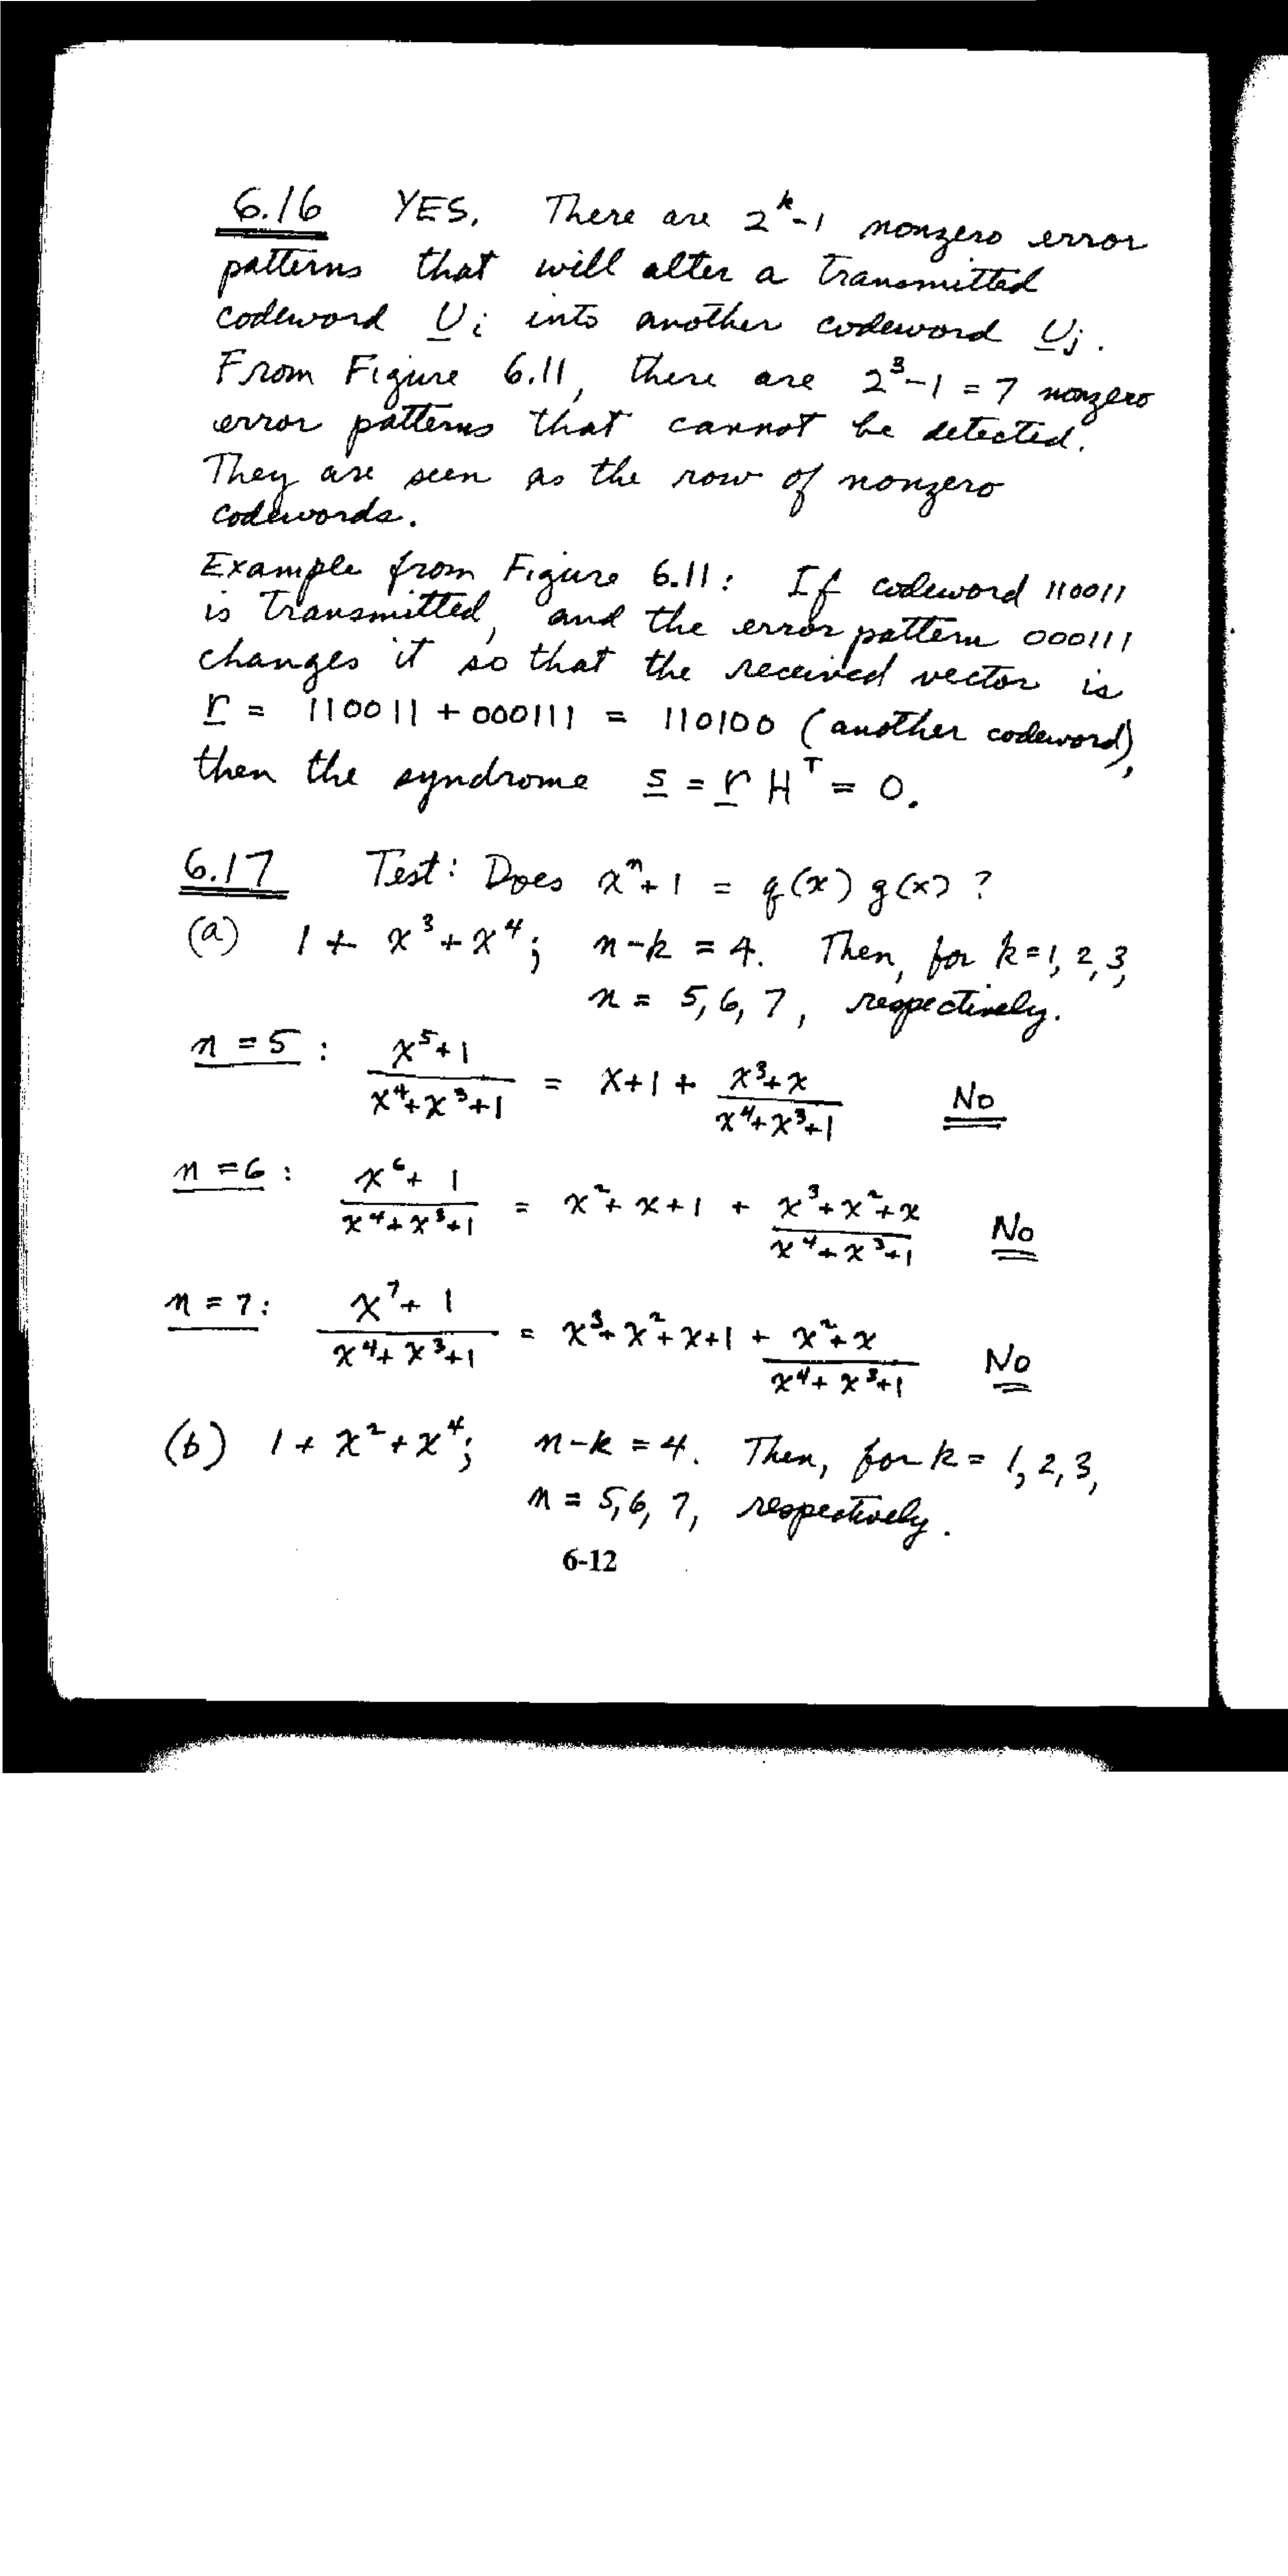 6.16 YES. There are 2^k-1 nonzero error
patterns that will alter a transmitted
codeword U_i into another codeword U_j.
From Figure 6.11, there are 2^3-1 = 7 nonzero
error patterns that cannot be detected.
They are seen as the row of nonzero
codewords.
Example from Figure 6.11: If codeword 110011
is transmitted, and the error pattern 000111
changes it so that the received vector is
r = 110011 + 000111 = 110100 (another codeword),
then the syndrome s = r H^T = 0.
6.17 Test: Does x^n + 1 = q(x) g(x)?
(a) 1 + x^3 + x^4; n-k = 4. Then, for k=1, 2, 3,
n = 5, 6, 7, respectively.
n = 5: (x^5+1)/(x^4+x^3+1) = x+1 + (x^3+x)/(x^4+x^3+1) No
n = 6: (x^6+1)/(x^4+x^3+1) = x^2+x+1 + (x^3+x^2+x)/(x^4+x^3+1) No
n = 7: (x^7+1)/(x^4+x^3+1) = x^3+x^2+x+1 + (x^2+x)/(x^4+x^3+1) No
(b) 1 + x^2 + x^4; n-k = 4. Then, for k = 1, 2, 3,
n = 5, 6, 7, respectively.
6-12